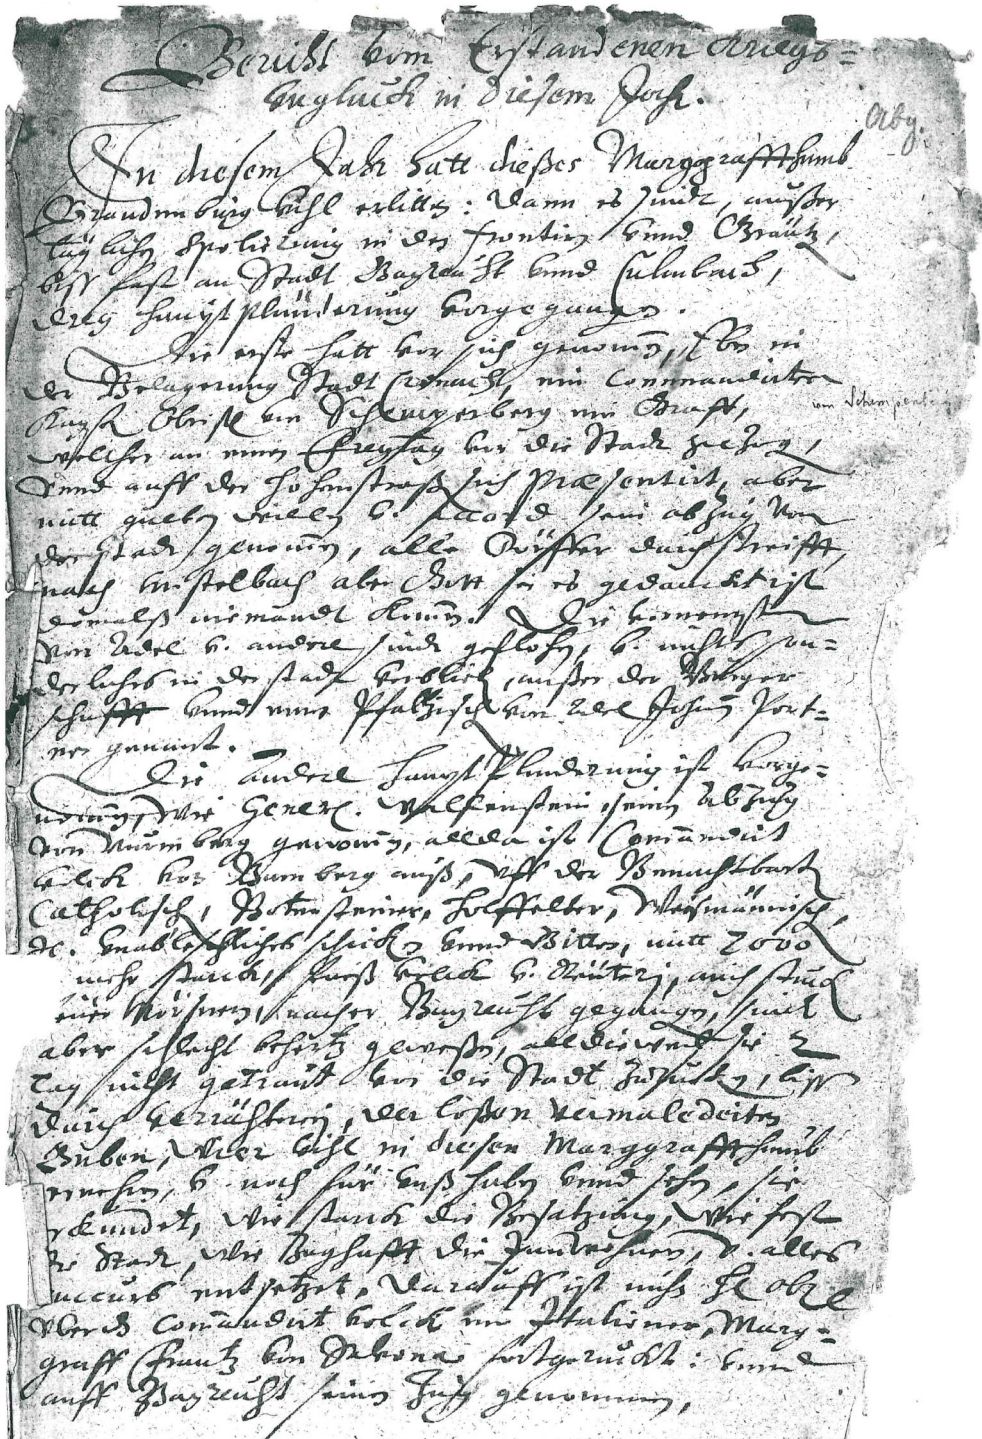 Bericht vom Erstandenen Kriegs=
vngluck in diesem Jahr.
Abg.
In diesem Jahr hatt dießes Marggraffthumb
Brandenburg viehl erlitten: dann es sindt, außer
täglicher Spolierung in den Frontirn vnnd Gräntz,
biss fast an Stadt Bayreuht vnnd Culmbach,
drey haupt Plünderung vorgegangen.
Die erste hatt vor sich genommen, Eben in
der Belagerung Stadt Cronacht, ein Commandirter
Kayß Obrist von ein Graff,
von
welcher an einen Freytag vor die Stadt gezogen,
vnnd auff der hohenstraß sich Præsentirt, aber
mitt gueten willen v. Accord sein abzug von
der Stadt genommen, alle Dörffer durchstreifft,
nach Mistelbach aber Gott sei es gedanckt ist
domalß niemandt kommen. Die vornembsten
von Adel v. andere sindt geflohen, v. nichts son=
derliches in der stadt verblieben, außer der Burger
schafft vnnd einer Pfaltzisch von Adel Johann Port=
ner genant.
Die andere haupt Plunderung ist vorge=
nommen, wie General. Wallenstein seinen Abzug
von Nurmberg genommen, allda ist Commandirt
volck von Bamberg auß, vff der Benachtbarten
Catholisch, Botensteiner, Holffelter, Weismännisch,
etc. vnableßliches schicken vnnd Bitten, mitt 2000
mehr starck, Fueß volck v. Reuterj, auch stuck
nacher Bayreuht gegangen, sindt
aber schlecht behertz geweßen, alldieweil sie 2
tag nicht getraut vor die Stadt zurucken, biss
durch verrähterej, der loßen vermaledeiten
Buben, vier viehl in diesen Marggraffthumb
v. noch für vnß haben vnnd sehen, sie
kundet, wie starck die Besatzung, wie fest
die Stadt, wie zaghafft die Innwohner, v. alles
uccurs entsetzet, darauff ist
Commandirt volck ein Italiener, Marg=
graff Frantz von fortgeruckt: vnnd
auff Bayreuht seinen Zug genommen,